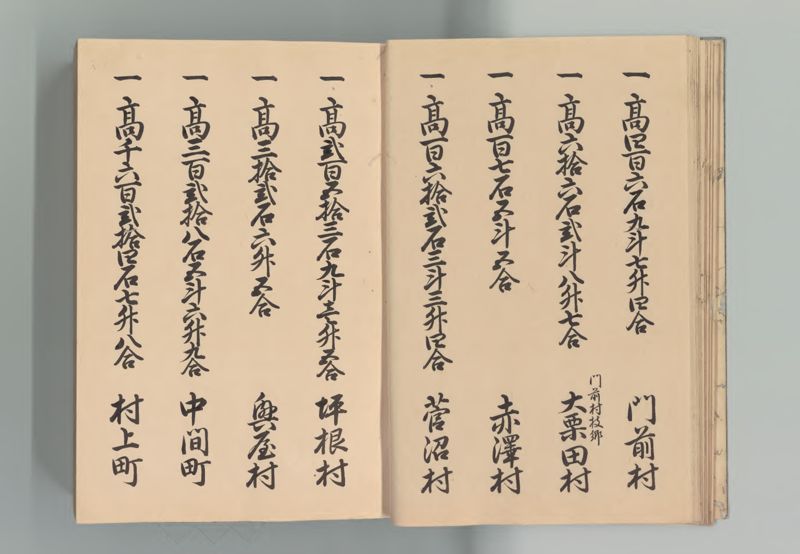 一 高四百六石九斗七升四合 門前村
一 高六拾六石弐斗八升七合 門前村枝郷 大栗田村
一 高百七石五斗五合 赤澤村
一 高百六拾弐石三斗三升四合 菅沼村
一 高弐百五拾三石九斗壱升五合 坪根村
一 高三拾弐石六升五合 興屋村
一 高三百弐拾八石五斗六升九合 中間町
一 高千六百弐拾四石七升八合 村上町